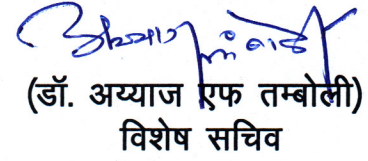 (डॉ. अय्याज एफ तम्बोली)
विशेष सचिव